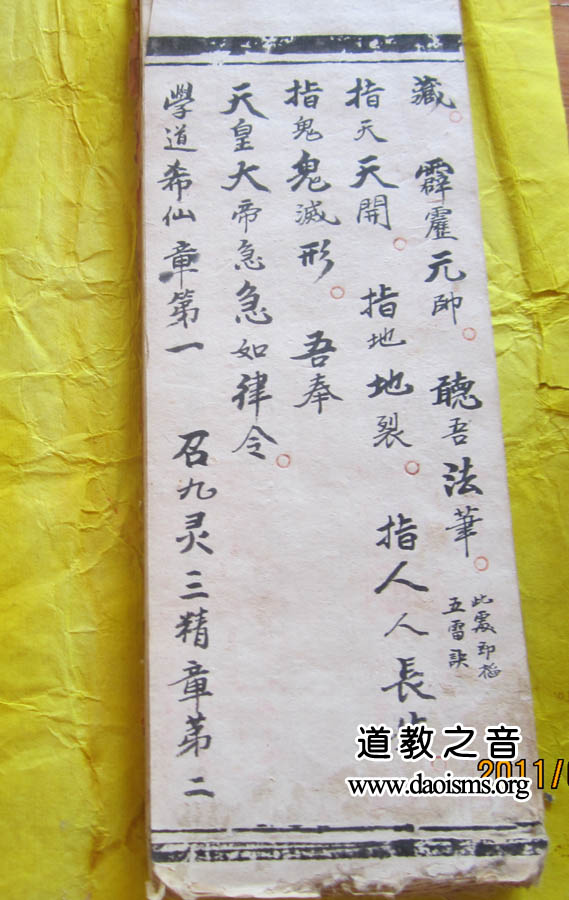 藏。霹靂元帥。聽吾法筆。
此處即掐
五雷訣
指天天開。指地地裂。指人人長生
指鬼鬼滅形。吾奉
天皇大帝急急如律令。
學道希仙章第一 召九灵三精章第二
道教之音
www.daoisms.org
2011/